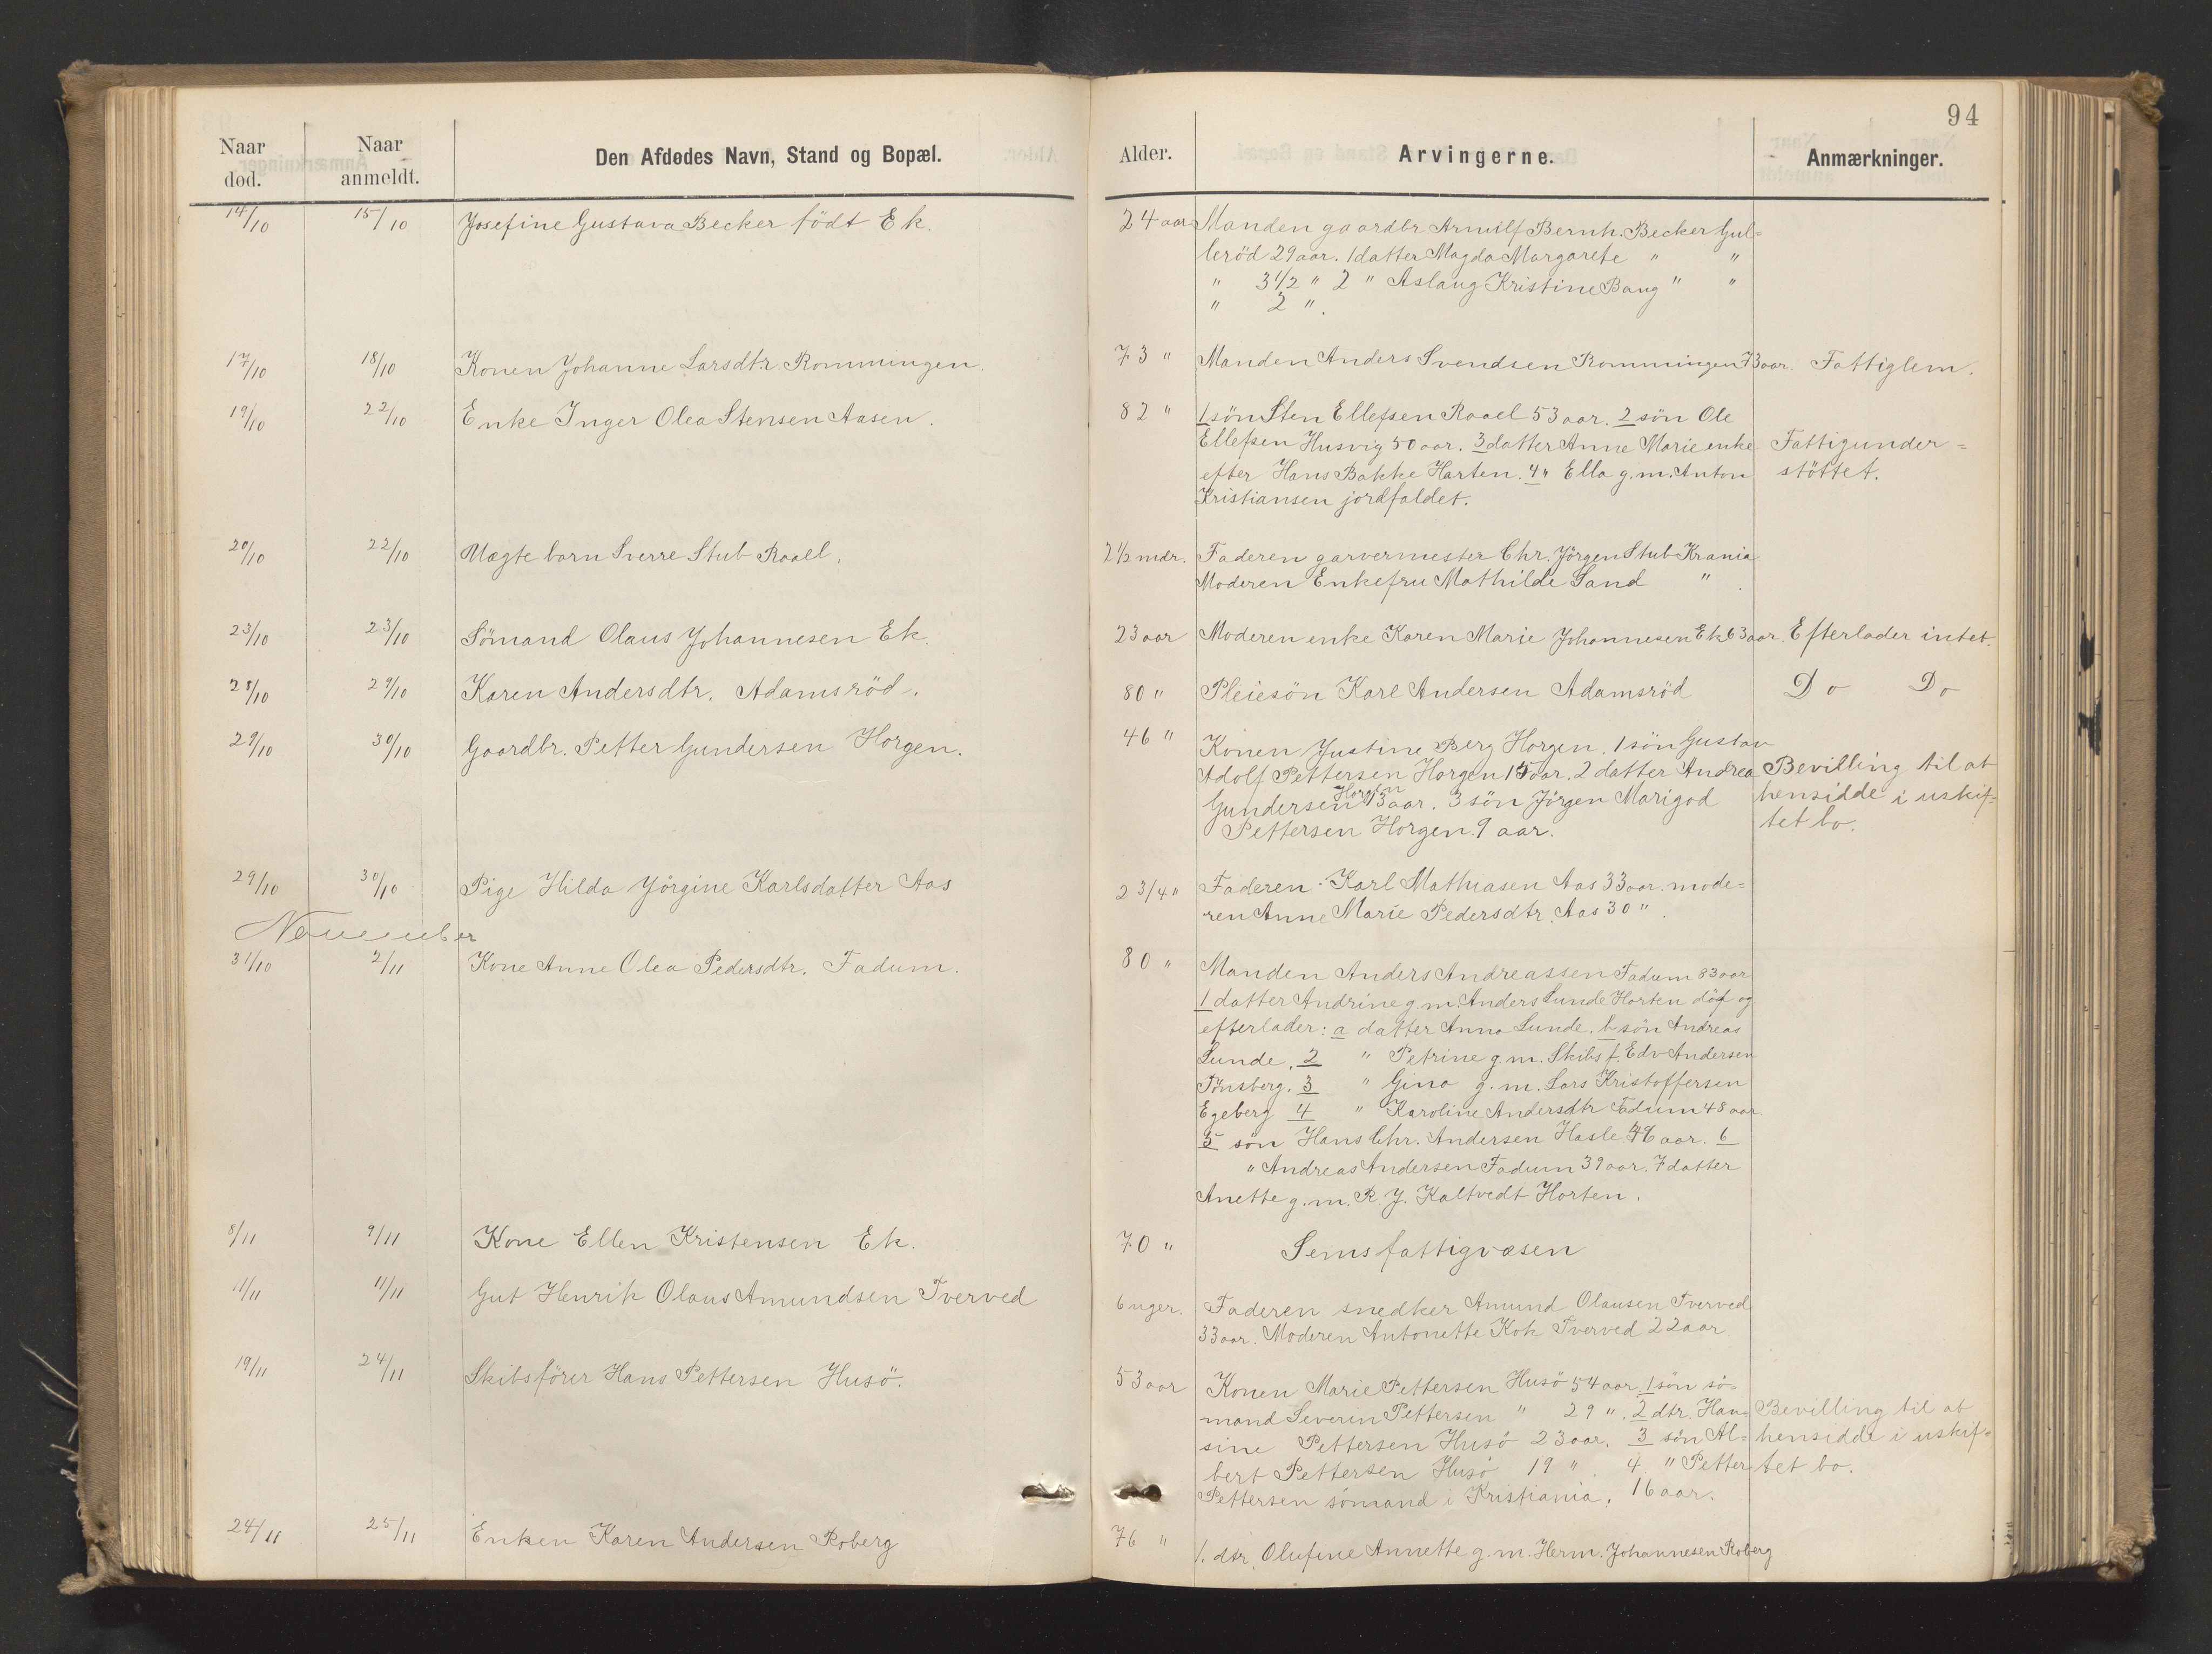 94
Naar død.
Naar anmeldt.
Den Afdødes Navn, Stand og Bopæl.
Alder.
Arvingerne.
Anmærkninger.
14/10 15/10 Josefine Gustava Becker födt Ek. 24 aar Manden gaardbr Arnulf Bernh. Becker Gul=
leröd 29 aar. 1 datter Magda Margarete " "
" 3 1/2 " 2 " Aslaug Kristine Bang " "
" 2 ".
17/10 18/10 Konen Johanne Larsdtr. Rommingen. 73 " Manden Anders Svendsen Rommingen 73 aar. Fattiglem.
19/10 22/10 Enke Inger Olea Stensen Aasen. 82 " 1 sön Sten Ellefsen Raael 53 aar. 2 sön Ole
Ellefsen Husvig 50 aar. 3 datter Anne Marie enke Fattigunder=
efter Hans Bakke Horten. 4 " Ella g. m. Anton stöttet.
Kristiansen jordfaldet.
20/10 22/10 Uægte barn Sverre Stub Raael. 2 1/2 mdr. Faderen garvermester Chr. Jörgen Stub Krania
Moderen Enkefru Mathilde Sand " .
23/10 23/10 Sömand Olaus Johannesen Ek. 23 aar Moderen enke Karen Marie Johannesen Ek 63 aar. Efterlader intet.
28/10 29/10 Karen Andersdtr. Adamsröd. 80 " Pleiesön Karl Andersen Adamsröd Do Do
29/10 30/10 Gaardbr. Petter Gundersen Horgen. 46 " Konen Justine Berg Horgen. 1 sön Gustav
Adolf Pettersen Horgen 15 aar. 2 datter Andrea Bevilling til at
Gundersen Horgen 13 aar. 3 sön Jörgen Marigod hensidde i uskif=
Pettersen Horgen. 9 aar. tet bo.
29/10 30/10 Pige Hilda Jörgine Karlsdatter Aas 2 3/4 " Faderen Karl Mathiasen Aas 33 aar. mode=
ren Anne Marie Pedersdtr. Aas 30 ".
November
31/10 2/11 Kone Anne Olea Pedersdtr. Fadum. 80 " Manden Anders Andreassen Fadum 83 aar
1 datter Andrine g. m. Anders Lunde Horten död og
efterlader: a datter Anna Lunde. b sön Andreas
Lunde. 2 " Petrine g. m. Skibsf. Edv Andersen
Tönsberg. 3 " Gina g. m. Lars Kristoffersen
Egeberg 4 " Karoline Andersdtr Fadum 48 aar.
5 sön Hans Chr. Andersen Hasle 46 aar. 6
" Andreas Andersen Fadum 39 aar. 7 datter
Anette g. m. R. J. Kaltvedt Horten.
8/11 9/11 Kone Ellen Kristensen Ek. 70 " Sems fattigvæsen
11/11 11/11 Gut Henrik Olaus Amundsen Tverved 6 uger. Faderen snedker Amund Olausen Tverved
33 aar. Moderen Antonette Kok Tverved 22 aar
19/11 24/11 Skibsförer Hans Pettersen Husö. 53 aar Konen Marie Pettersen Husö 54 aar, 1 sön sö=
mand Severin Pettersen " 29 ". 2 dtr. Han= Bevilling til at
sine Pettersen Husö 23 aar. 3 sön Al= hensidde i uskif=
bert Pettersen Husö 19 ". 4. " Petter tet bo.
Pettersen sömand i Kristiania, 16 aar.
24/11 25/11 Enken Karen Andersen Roberg 76 " 1. dtr. Olufine Annette g. m. Herm. Johannesen Roberg